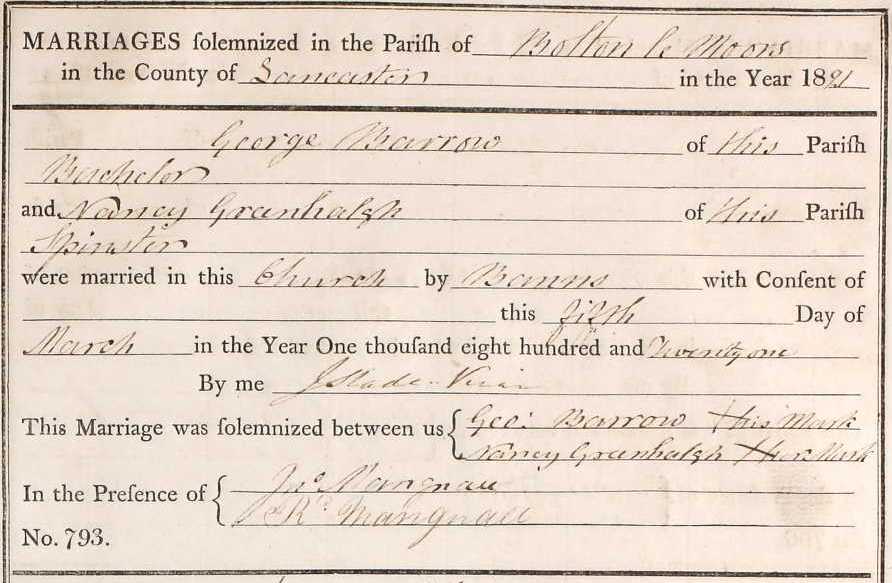 MARRIAGES ſolemnized in the Pariſh of Bolton le Moors
in the County of Lancaster in the Year 1821
George Barrow of this Pariſh
Bachelor
and Nancy Greenhalgh of this Pariſh
Spinster
were married in this Church by Banns with Conſent of
this fifth Day of
March in the Year One thouſand eight hundred and Twenty one
By me J Slade Vicar
This Marriage was ſolemnized between us { Geo: Barrow × his Mark
Nancy Greenhalgh × her Mark
In the Preſence of { Jno Mangnall
Rd Mangnall
No. 793.